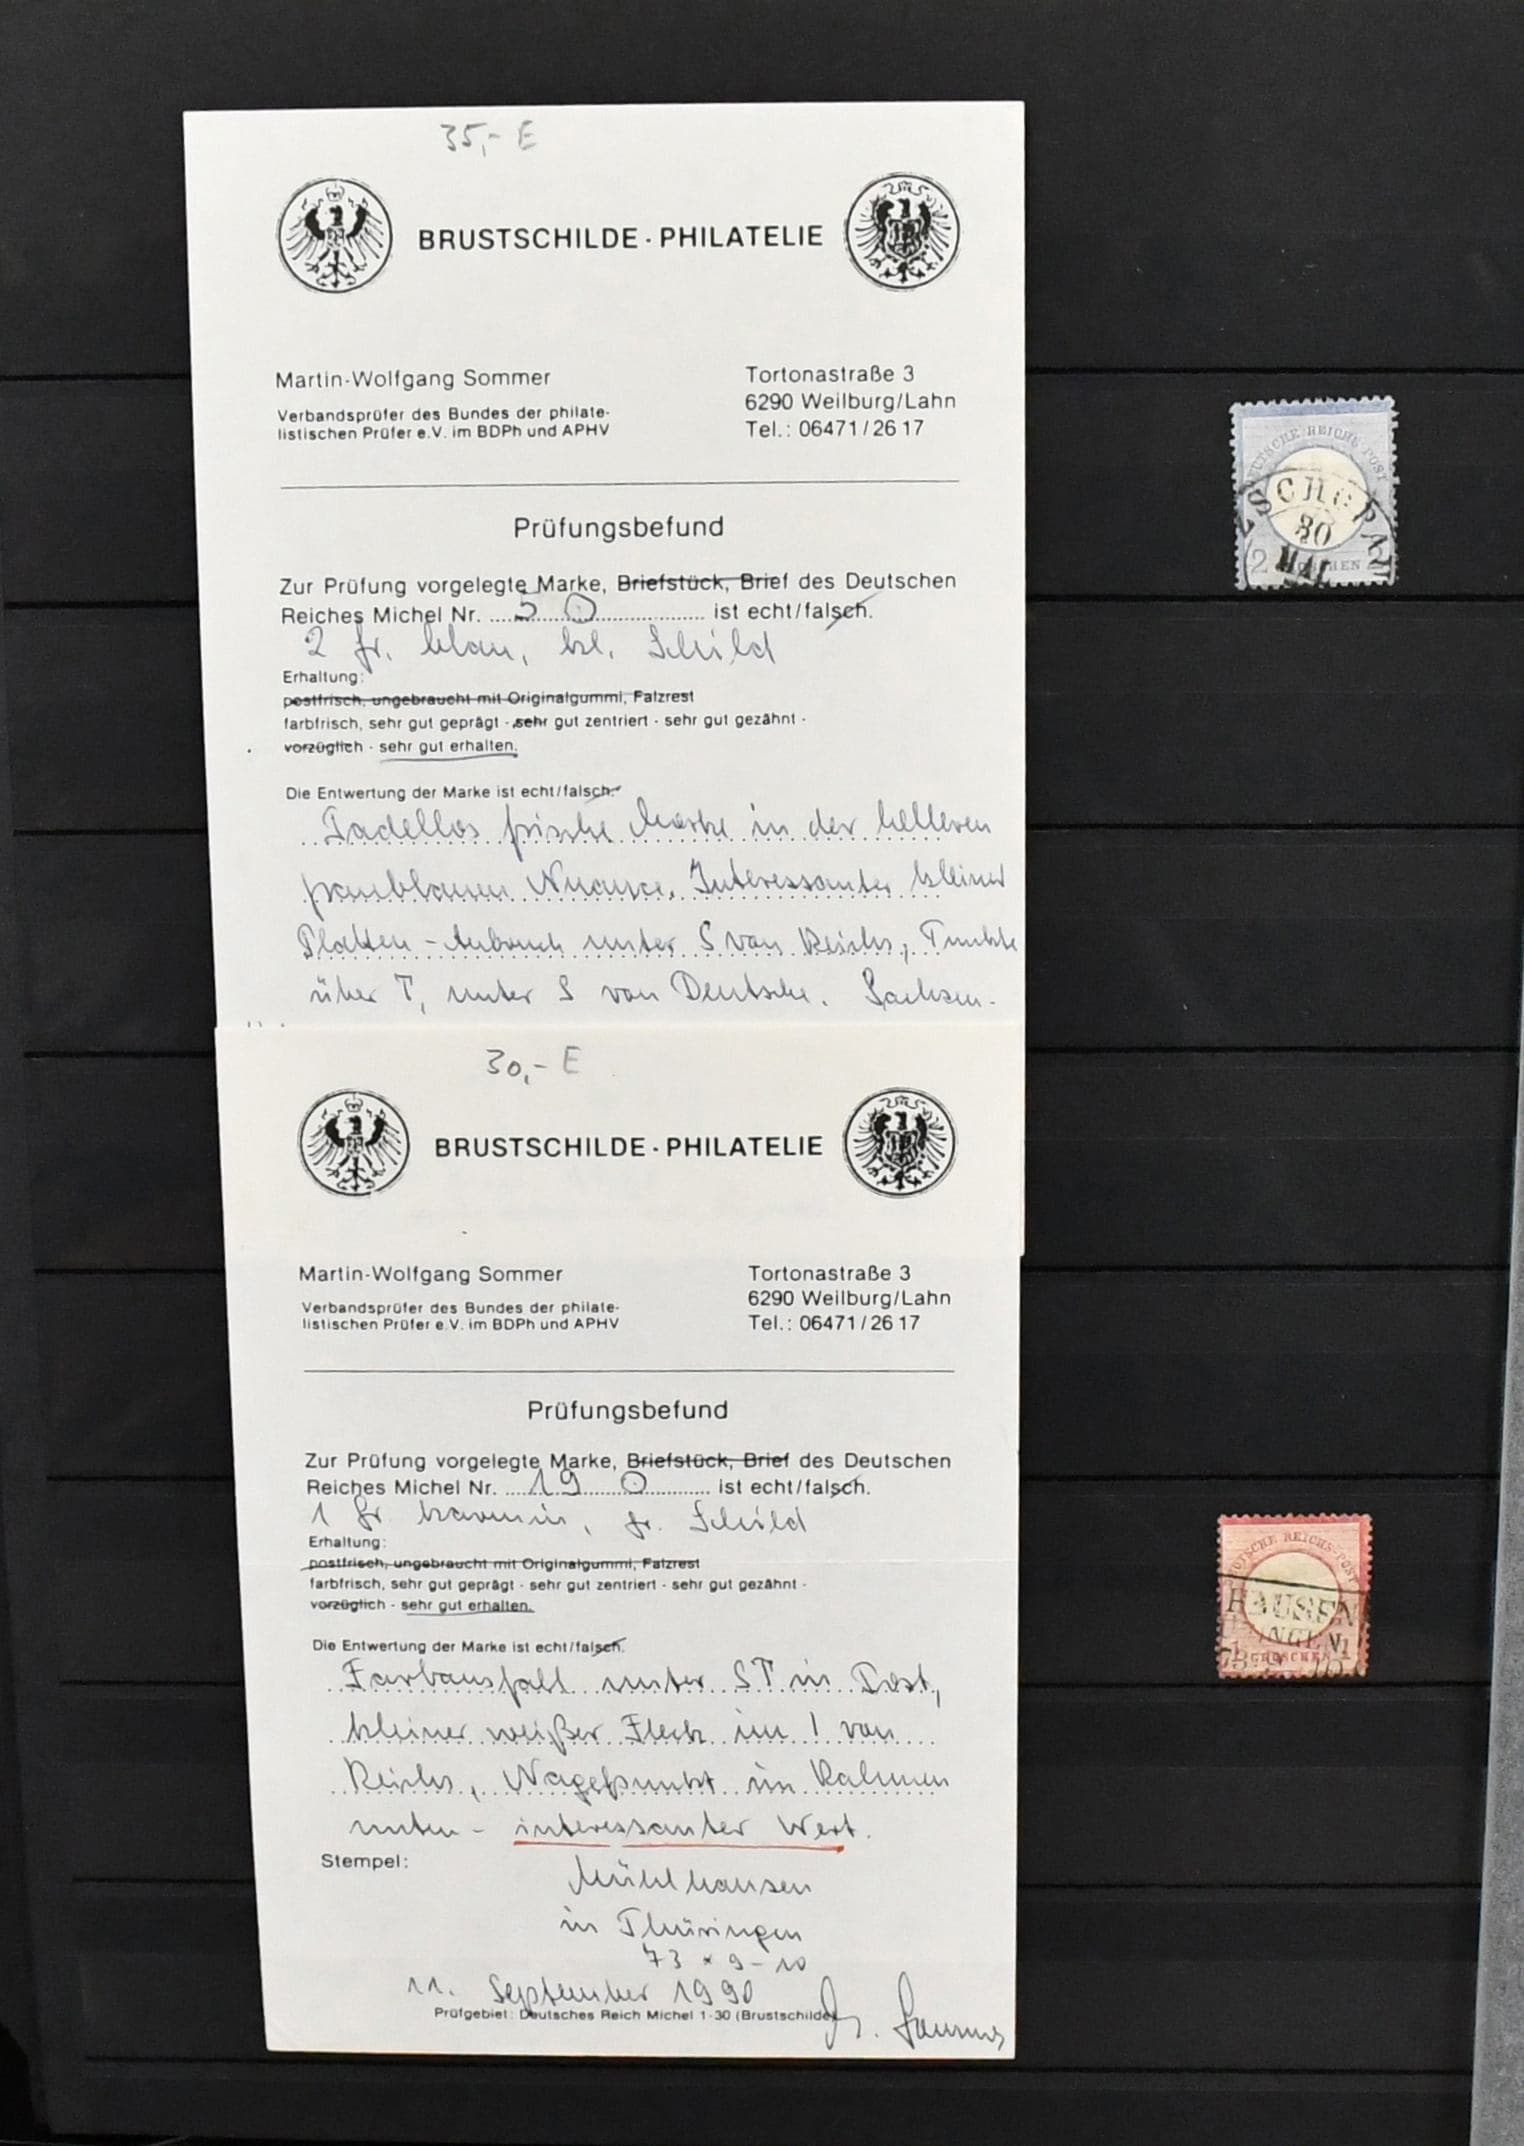 35,- E
BRUSTSCHILDE · PHILATELIE
Martin-Wolfgang Sommer
Verbandsprüfer des Bundes der philate-
listischen Prüfer e.V. im BDPh und APHV
Tortonastraße 3
6290 Weilburg/Lahn
Tel.: 06471/26 17
Prüfungsbefund
Zur Prüfung vorgelegte Marke, Briefstück, Brief des Deutschen
Reiches Michel Nr. 5 ist echt/falsch.
2 Gr. blau, kl. Schild
Erhaltung:
postfrisch, ungebraucht mit Originalgummi, Falzrest
farbfrisch, sehr gut geprägt - sehr gut zentriert - sehr gut gezähnt -
vorzüglich - sehr gut erhalten.
Die Entwertung der Marke ist echt/falsch.
Tadellos frische Marke in der helleren
graublauen Nuance. Interessanter kleiner
Platten-Anbruch unter S von Reichs, Punkte
über T, unter S von Deutsche. Sachsen-
30,- E
BRUSTSCHILDE · PHILATELIE
Martin-Wolfgang Sommer
Verbandsprüfer des Bundes der philate-
listischen Prüfer e.V. im BDPh und APHV
Tortonastraße 3
6290 Weilburg/Lahn
Tel.: 06471/26 17
Prüfungsbefund
Zur Prüfung vorgelegte Marke, Briefstück, Brief des Deutschen
Reiches Michel Nr. 19 ist echt/falsch.
1 Gr karmin, gr. Schild
Erhaltung:
postfrisch, ungebraucht mit Originalgummi, Falzrest
farbfrisch, sehr gut geprägt - sehr gut zentriert - sehr gut gezähnt -
vorzüglich - sehr gut erhalten.
Die Entwertung der Marke ist echt/falsch.
Farbausfall unter ST in Post,
kleiner weißer Fleck im I von
Reichs, Nagelpunkt im Rahmen
unten - interessanter Wert.
Stempel:
Mühlhausen
in Thüringen
73 * 9-10
11. September 1990
Prüfgebiet: Deutsches Reich Michel 1-30 (Brustschilde)
Sommer
DEUTSCHE REICHS-POST
ZSCHOPAU
30
2
GROSCHEN
2
DEUTSCHE REICHS-POST
HAUSEN
INGEN
1 GROSCHEN 1